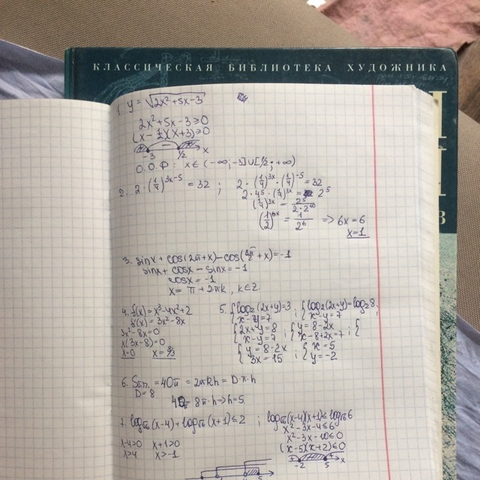 КЛАССИЧЕСКАЯ БИБЛИОТЕКА ХУДОЖНИКА
1. y = √(2x²+5x-3)
2x²+5x-3≥0
(x-1/2)(x+3)≥0
-3 1/2 x
О.О.Р: x∈(-∞,-3]∪[1/2;+∞)
2. 2·(1/4)^(3x-5) = 32 ; 2·(1/4)^(3x)·(1/4)^(-5) = 32
2·4^5·(1/4)^(3x) = 2^5
(1/4)^(3x) = 2^5/(2·2^10)
(1/2)^(6x) = 1/2^6 => 6x=6
x=1
3. sinx + cos(2π+x) - cos(3π/2+x) = -1
sinx + cosx - sinx = -1
cosx = -1
x = π + 2πk, k∈Z
4. f(x) = x³-4x²+2
f'(x) = 3x²-8x
3x²-8x=0
x(3x-8)=0
x=0 x=8/3
5. {log₂(2x+y)=3 ; {log₂(2x+y)=log₂8
{x-y=7 ; {x-y=7
{2x+y=8 ; {y=8-2x
{x-y=7 ; {x-8+2x=7 ; {
{y=8-2x ; {x=5
{3x=15 ; {y=-2
6. = 40π = 2πRh = D·π·h
D=8
40 = 8π·h => h=5
(x-4) + (x+1) ≤ 2 ; (x-4)(x+1) ≤ 6
x-4>0 x+1>0
x²-3x-4≤6
x>4 x>-1
x²-3x-10≤0
(x-5)(x+2)≤0
-2 5 x